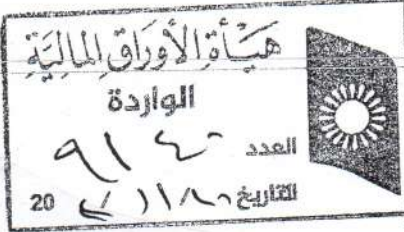 هيأة الأوراق المالية
الواردة
العدد ٩١٤٠
التاريخ 20